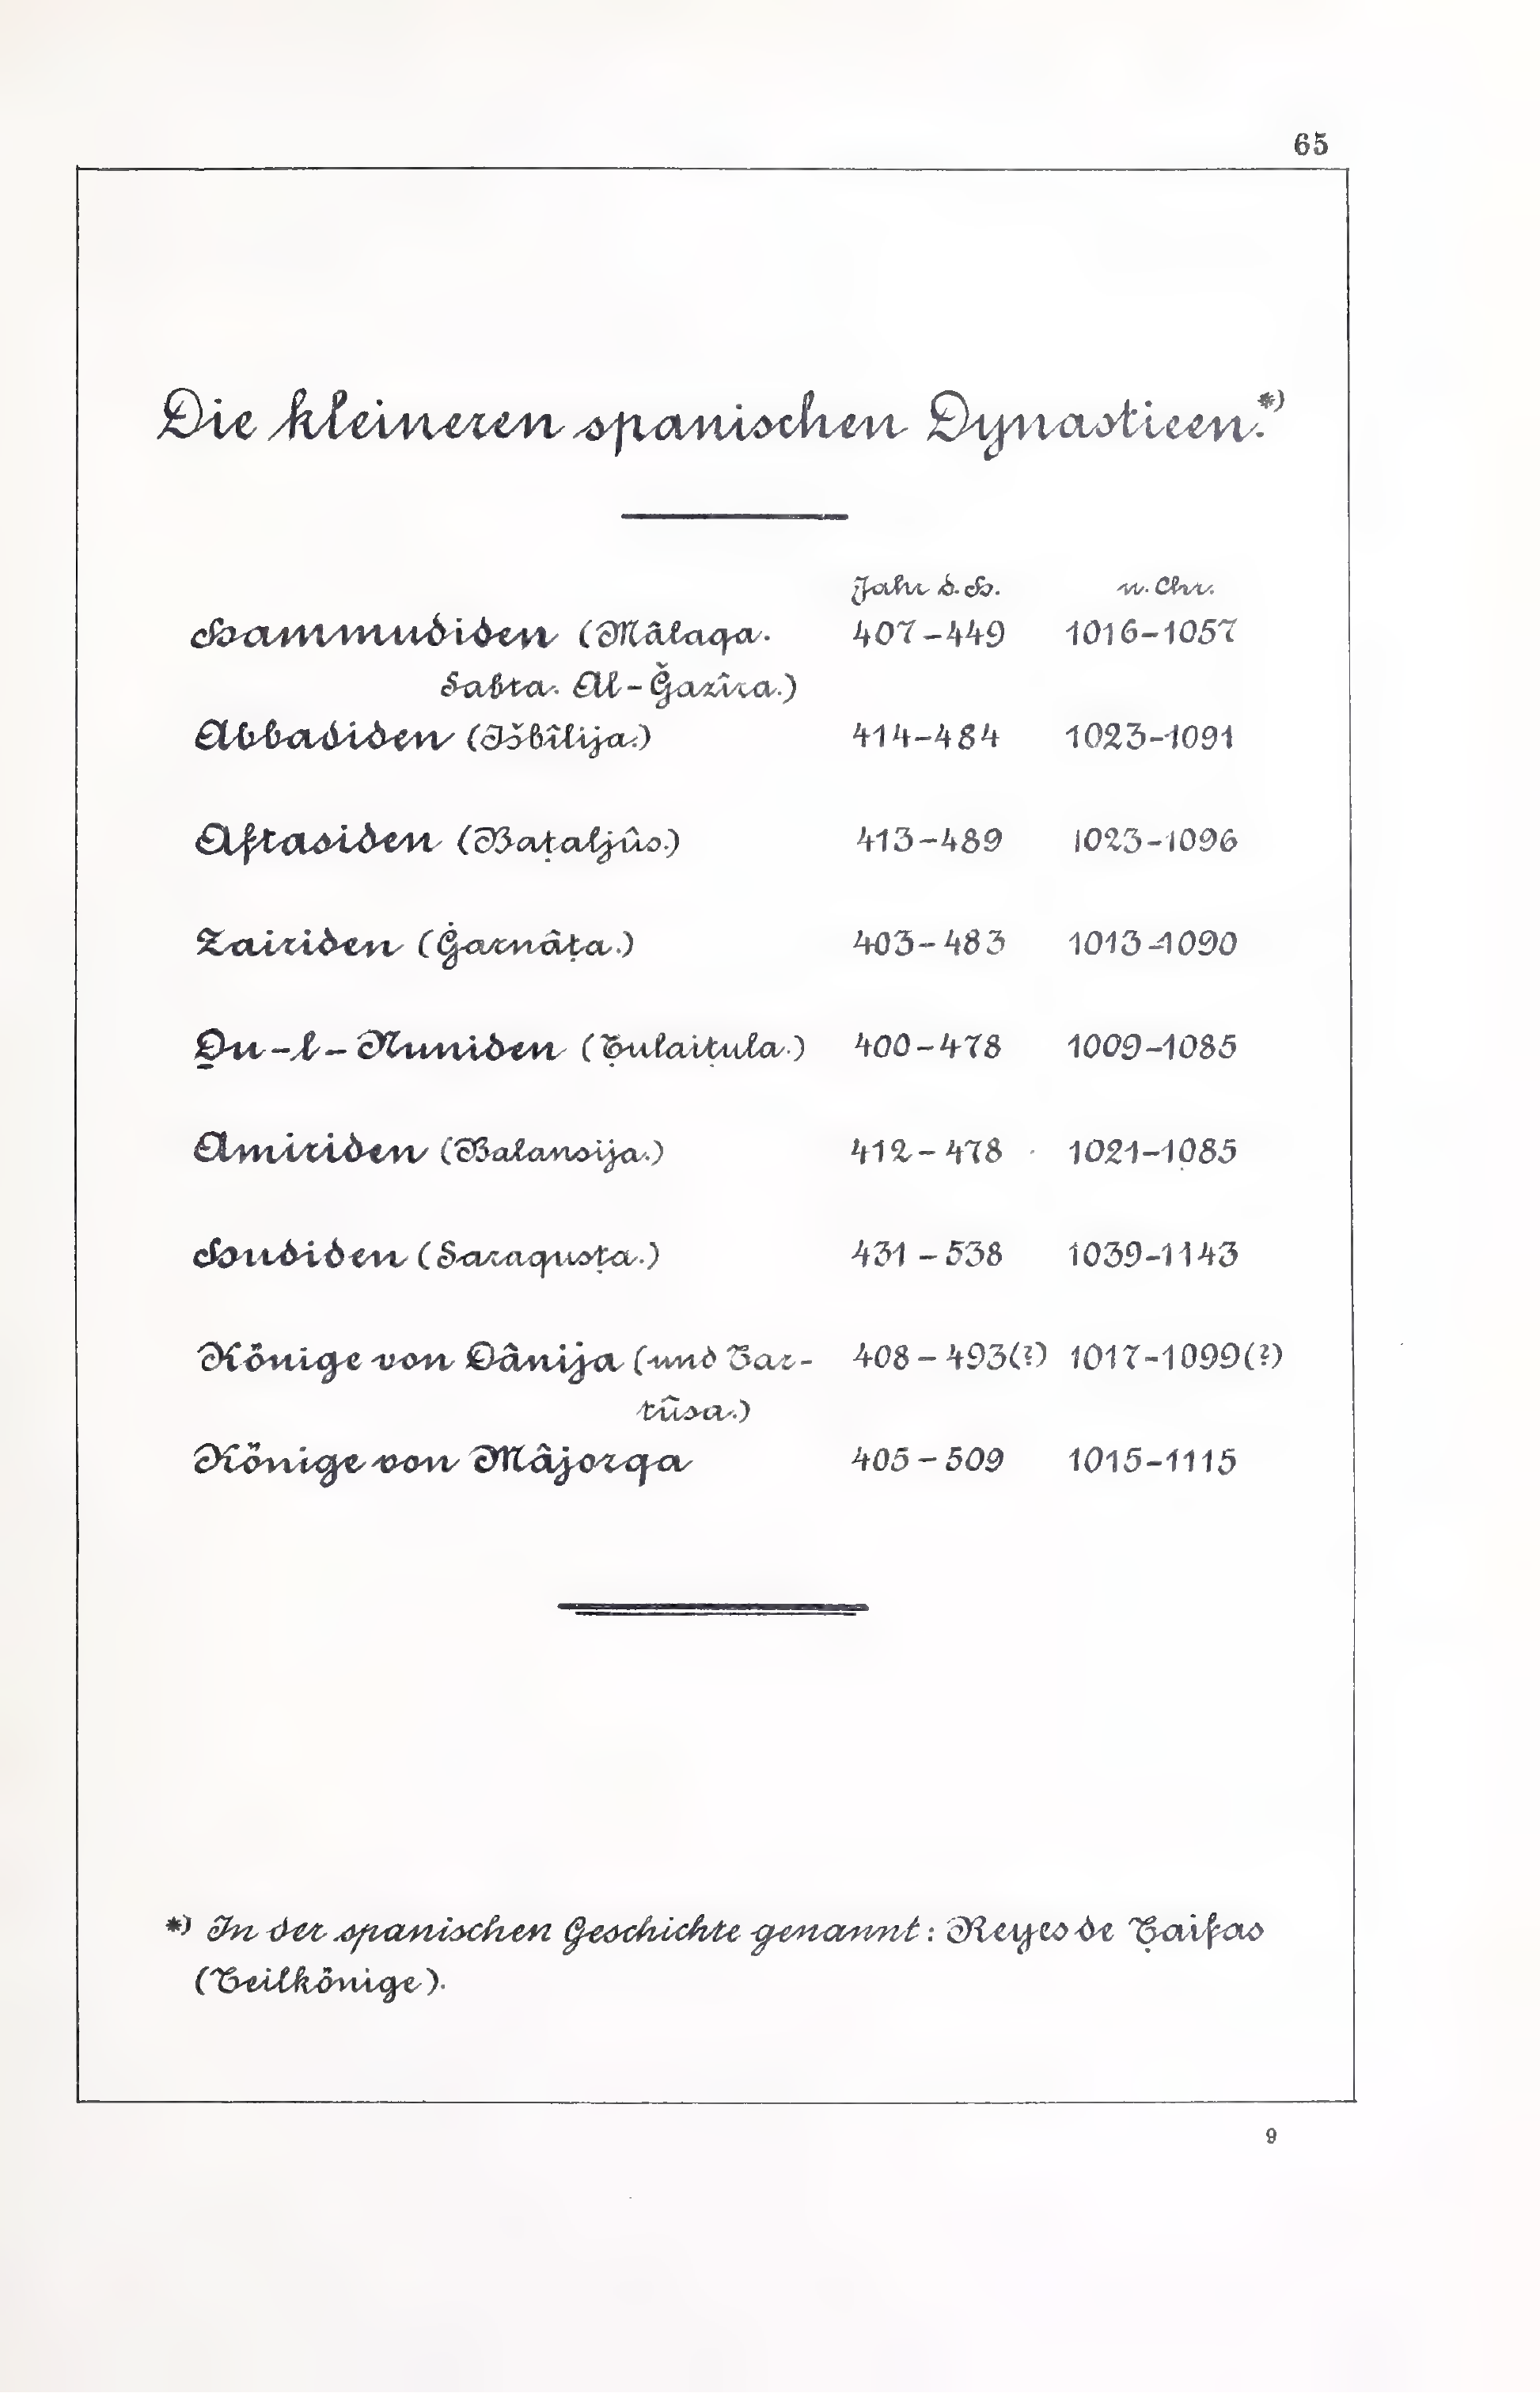 65
Die kleineren spanischen Dynastieen.*)
Jahr d. H. n. Chr.
Hammudiden (Mâlaqa. 407–449 1016–1057
Sabta. Al-Ǧazîra.)
Abbadiden (Išbîlija.) 414–484 1023–1091
Aftasiden (Baṭaljûs.) 413–489 1023–1096
Zairiden (Ġarnâṭa.) 403–483 1013–1090
Ḏu-l-Nuniden (Ṭulaiṭula.) 400–478 1009–1085
Amiriden (Balansija.) 412–478 1021–1085
Hudiden (Saraqusṭa.) 431–538 1039–1143
Könige von Dânija (und Tar- 408–493(?) 1017–1099(?)
tûsa.)
Könige von Mâjorqa 405–509 1015–1115
*) In der spanischen Geschichte genannt: Reyes de Ṭaifas
(Teilkönige).
9